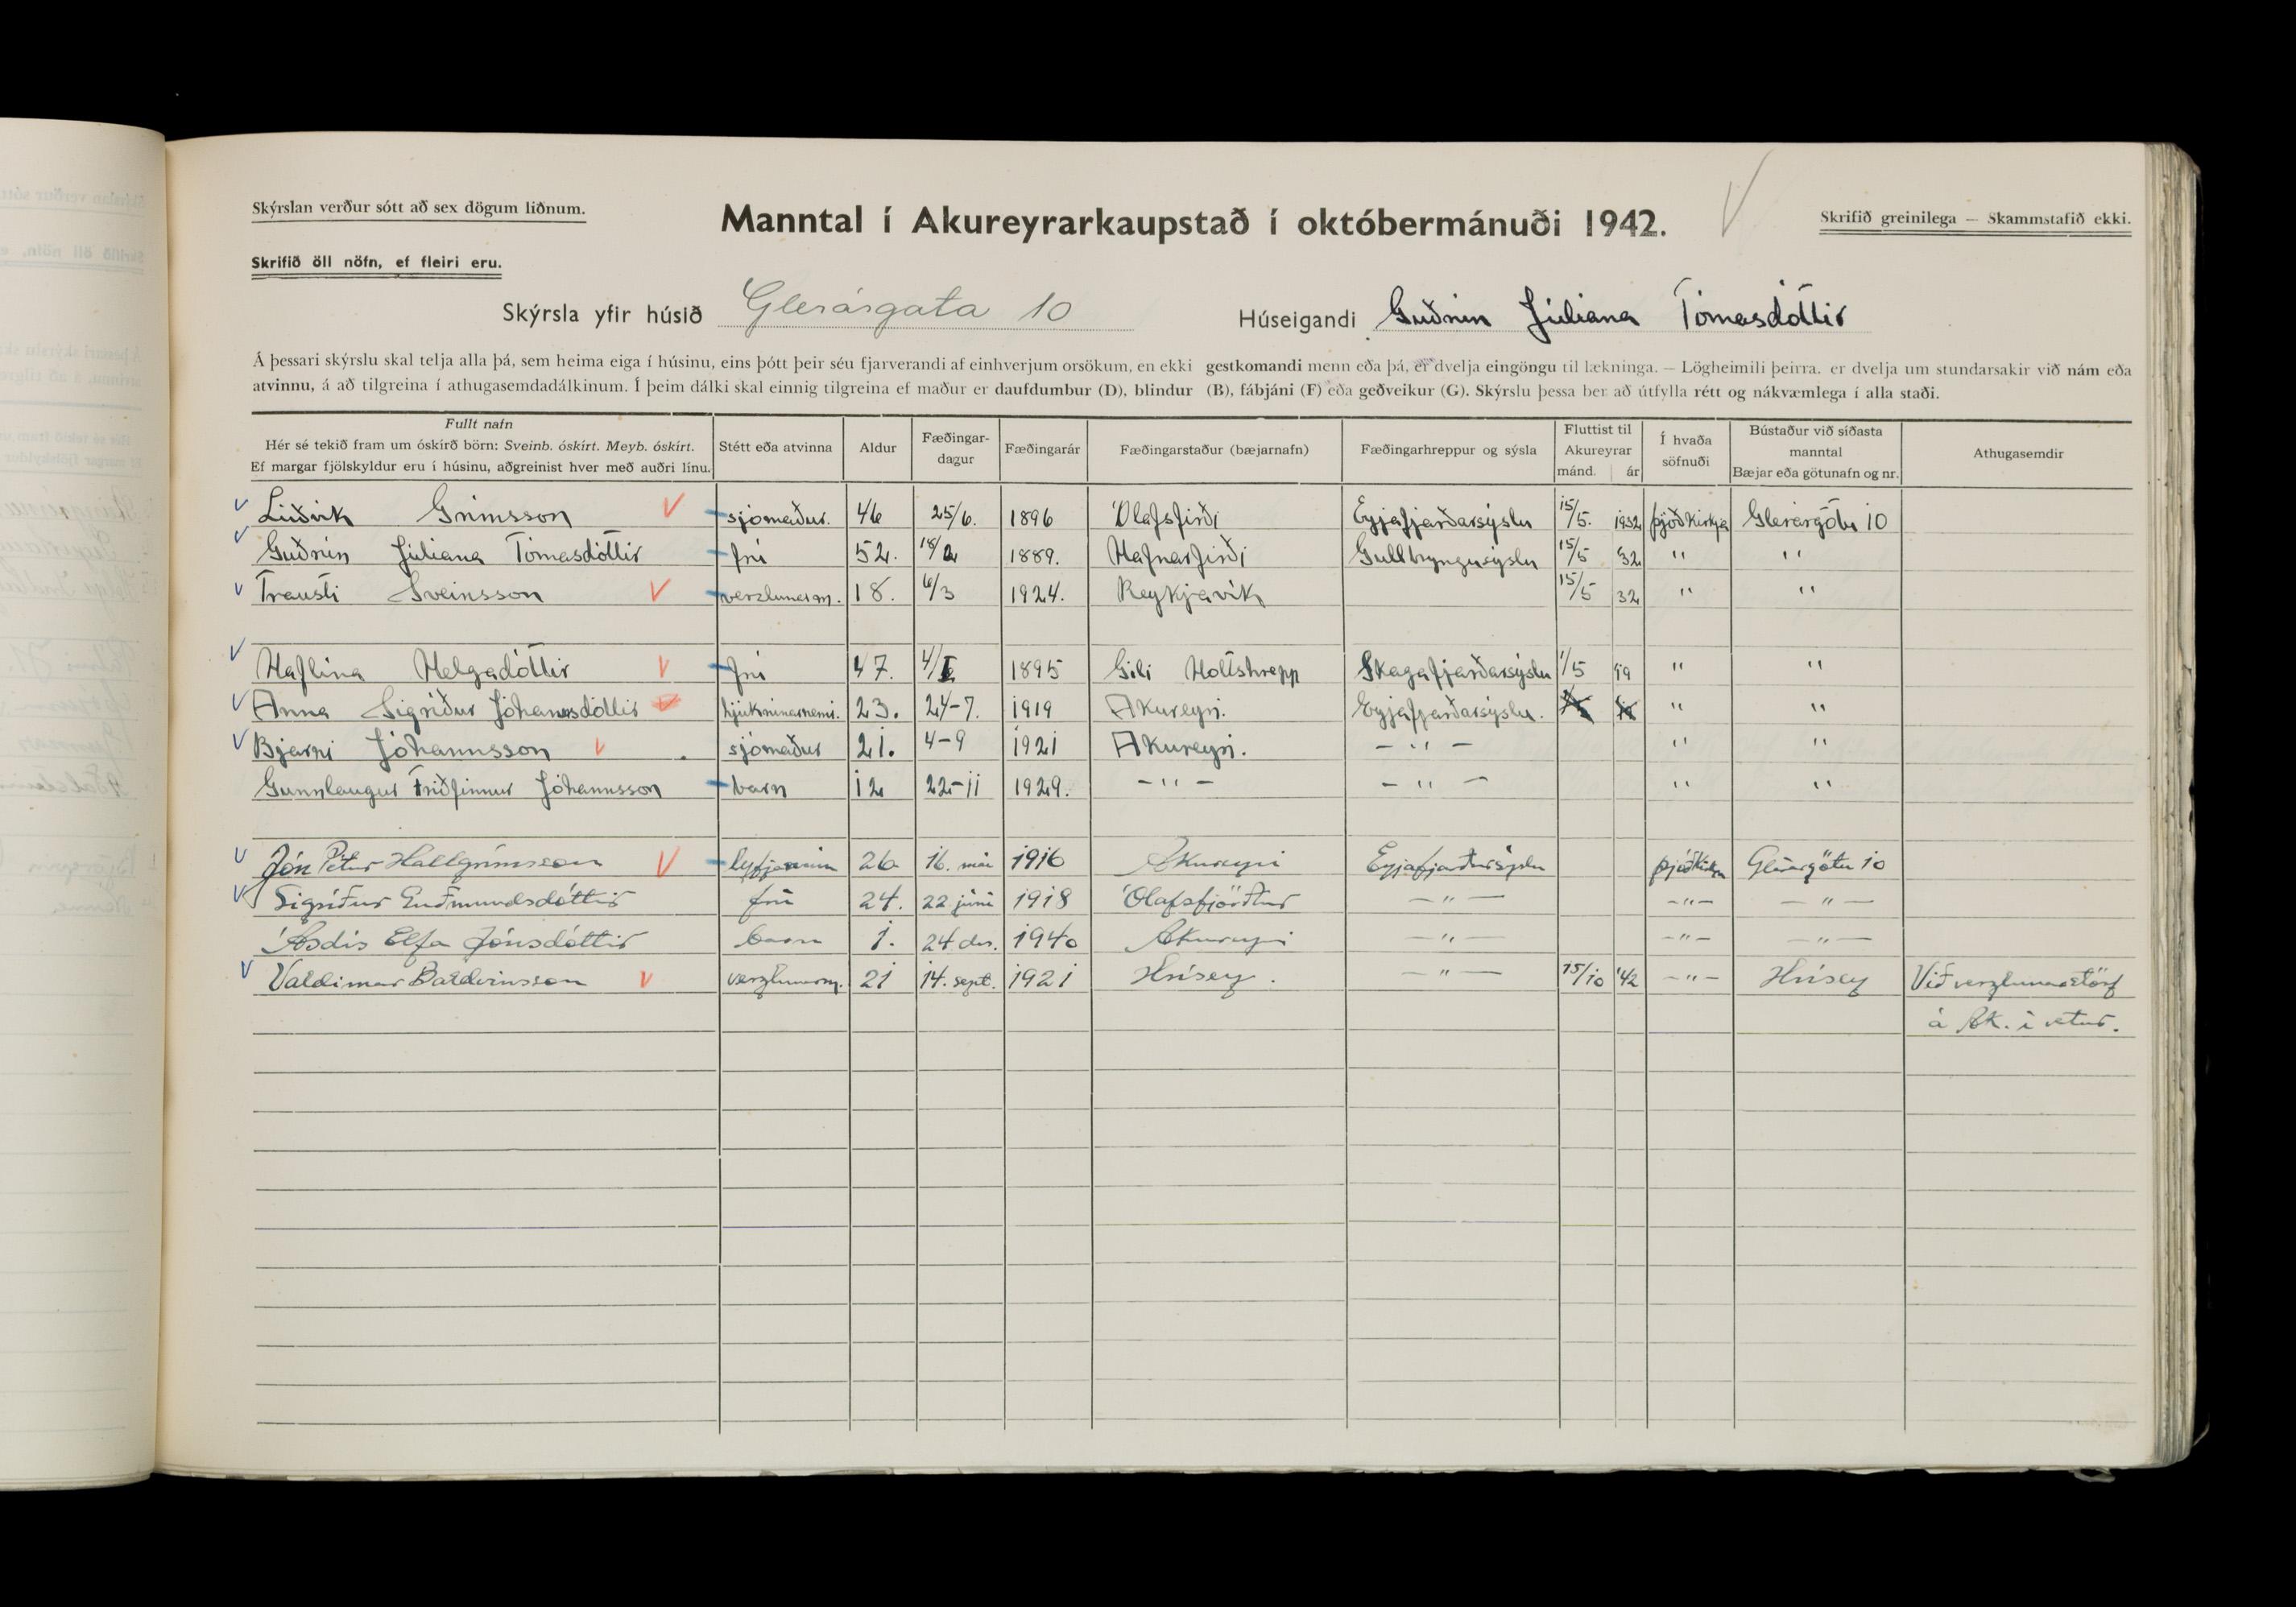 Skýrslan verður sótt að sex dögum liðnum.
Manntal í Akureyrarkaupstað í októbermánuði 1942.
Skrifið greinilega — Skammstafið ekki.
Skrifið öll nöfn, ef fleiri eru.
Skýrsla yfir húsið Glerárgata 10 Húseigandi Guðrún Júlíana Tómasdóttir
Á þessari skýrslu skal telja alla þá, sem heima eiga í húsinu, eins þótt þeir séu fjarverandi af einhverjum orsökum, en ekki gestkomandi menn eða þá, er dvelja eingöngu til lækninga. — Lögheimili þeirra. er dvelja um stundarsakir við nám eða
atvinnu, á að tilgreina í athugasemdadálkinum. Í þeim dálki skal einnig tilgreina ef maður er daufdumbur (D), blindur (B), fábjáni (F) eða geðveikur (G). Skýrslu þessa ber að útfylla rétt og nákvæmlega í alla staði.
Fullt nafn
Hér sé tekið fram um óskírð börn: Sveinb. óskírt. Meyb. óskírt.
Ef margar fjölskyldur eru í húsinu, aðgreinist hver með auðri línu.
Stétt eða atvinna
Aldur
Fæðingar-
dagur
Fæðingarár
Fæðingarstaður (bæjarnafn)
Fæðingarhreppur og sýsla
Fluttist til
Akureyrar
mánd. ár
Í hvaða
söfnuði
Bústaður við síðasta
manntal
Bæjar eða götunafn og nr.
Athugasemdir
Lúðvik Grímsson sjómaður. 46 25/6. 1896 Ólafsfirði Eyjafjarðarsýslu 15/5. 1932 þjóðkirkja Glerárgötu 10
Guðrún Júlíana Tómasdóttir frú 52. 18/2 1889. Hafnarfirði Gullbryngusýslu 15/5 32 " "
Trausti Sveinsson verzlunarm. 18. 6/3 1924. Reykjavík 15/5 32 " "
Haflína Helgadóttir frú 47. 4/ 1895 Gili Holtshrepp Skagafjarðarsýslu 1/5 19 " "
Anna Sigríður Jóhannsdóttir hjúkrunarnemi. 23. 24-7. 1919 Akureyri. Eyjafjarðarsýslu. " "
Bjarni Jóhannsson sjómaður 21. 4-9 1921 Akureyri. - " - " "
Gunnlaugur Friðfinnur Jóhannsson barn 12 22-11 1929. - " - - " - " "
Jón Pétur Hallgrímsson 26 16. mái 1916 Akureyri Eyjafjarðarsýslu þjóðkirkja Glerárgötu 10
Sigríður Guðmundsdóttir frú 24. 22 júní 1918 Ólafsfjörður - " - - " - - " -
Ásdís Elfa Jónsdóttir barn 1. 24 des. 1940 Akureyri - " - - " - - " -
Valdimar Baldvinsson verzlunarm. 21 14. sept. 1921 Hrísey. - " - 15/10 '42 - " - Hrísey Við verzlunarstörf
á Ak. í vetur.